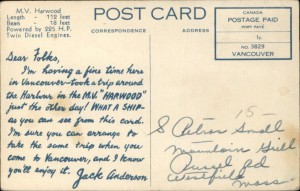 M.V. Harwood
Length - 112 feet
Beam - 18 feet
Powered by 225 H.P.
Twin Diesel Engines.
POST CARD
CORRESPONDENCE
ADDRESS
CANADA
POSTAGE PAID
PORT PAYÉ
1¢
NO. 3829
VANCOUVER
Dear Folks,
I'm having a fine time here
in Vancouver-took a trip around
the Harbour in the M.V. "HARWOOD"
just the other day! WHAT A SHIP-
as you can see from this card.
I'm sure you can arrange to
take the same trip when you
come to Vancouver, and I know
you'll enjoy it. Jack Anderson
15-
S Small
Mountain
Russel Rd
Westfield
Mass-